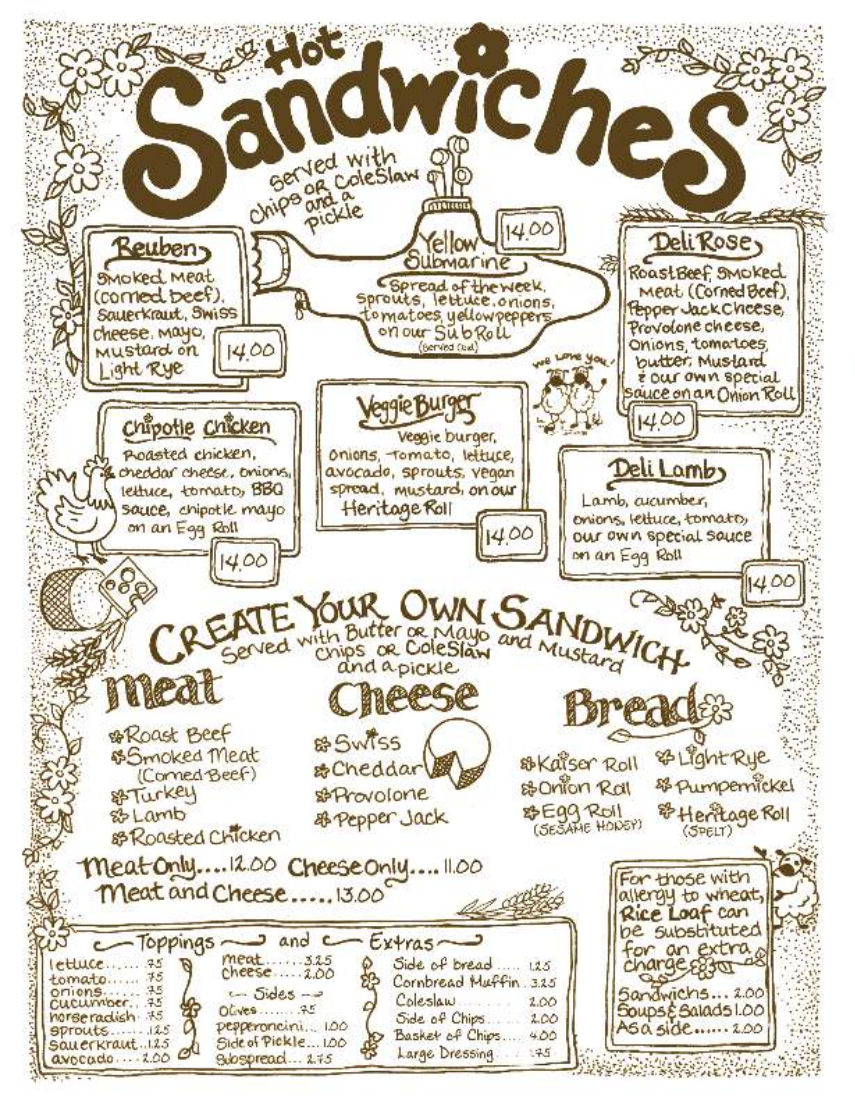 Hot
Sandwiches
Served with
Chips or Coleslaw
and a
Pickle
Reuben
Smoked Meat
(corned beef),
Sauerkraut, Swiss
Cheese, Mayo,
Mustard on
Light Rye
14.00
Yellow
Submarine
14.00
Spread of the week,
sprouts, lettuce, onions,
tomatoes, yellow peppers
on our Sub Roll
(Served Cold)
Deli Rose
Roast Beef, Smoked
Meat (Corned Beef),
Pepper Jack Cheese,
Provolone cheese,
Onions, tomatoes,
butter, Mustard
& our own special
sauce on an Onion Roll
14.00
We Love you!
Chipotle Chicken
Roasted chicken,
cheddar cheese, onions,
lettuce, tomato, BBQ
sauce, chipotle mayo
on an Egg Roll
14.00
Veggie Burger
Veggie burger,
onions, Tomato, lettuce,
avocado, sprouts, vegan
spread, mustard, on our
Heritage Roll
14.00
Deli Lamb
Lamb, cucumber,
onions, lettuce, tomato,
our own special sauce
on an Egg Roll
14.00
CREATE YOUR OWN SANDWICH
Served with Butter or Mayo and Mustard
Chips or Coleslaw
and a pickle
Meat
Roast Beef
Smoked Meat
(Corned Beef)
Turkey
Lamb
Roasted Chicken
Cheese
Swiss
Cheddar
Provolone
Pepper Jack
Bread
Kaiser Roll
Onion Roll
Egg Roll
(SESAME HONEY)
Light Rye
Pumpernickel
Heritage Roll
(SPELT)
Meat Only....12.00 Cheese Only....11.00
Meat and Cheese.....13.00
For those with
allergy to wheat,
Rice Loaf can
be substituted
for an extra
charge
Sandwichs... 2.00
Soups & Salads 1.00
As a side...... 2.00
Toppings and Extras
lettuce....... .75
tomato...... .75
onions...... .75
cucumber.. .75
horseradish .75
sprouts..... 1.25
sauerkraut..1.25
avocado.... 2.00
meat....... 3.25
cheese..... 2.00
Sides
Olives...... .75
pepperoncini... 1.00
Side of Pickle... 1.00
Subspread... 2.75
Side of bread..... 1.25
Cornbread Muffin. 3.25
Coleslaw........ 2.00
Side of Chips.... 2.00
Basket of Chips.... 4.00
Large Dressing.....